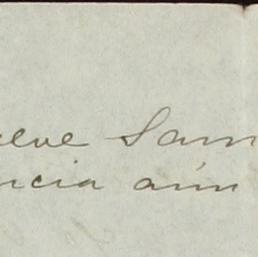 eve Sam
ncia aún